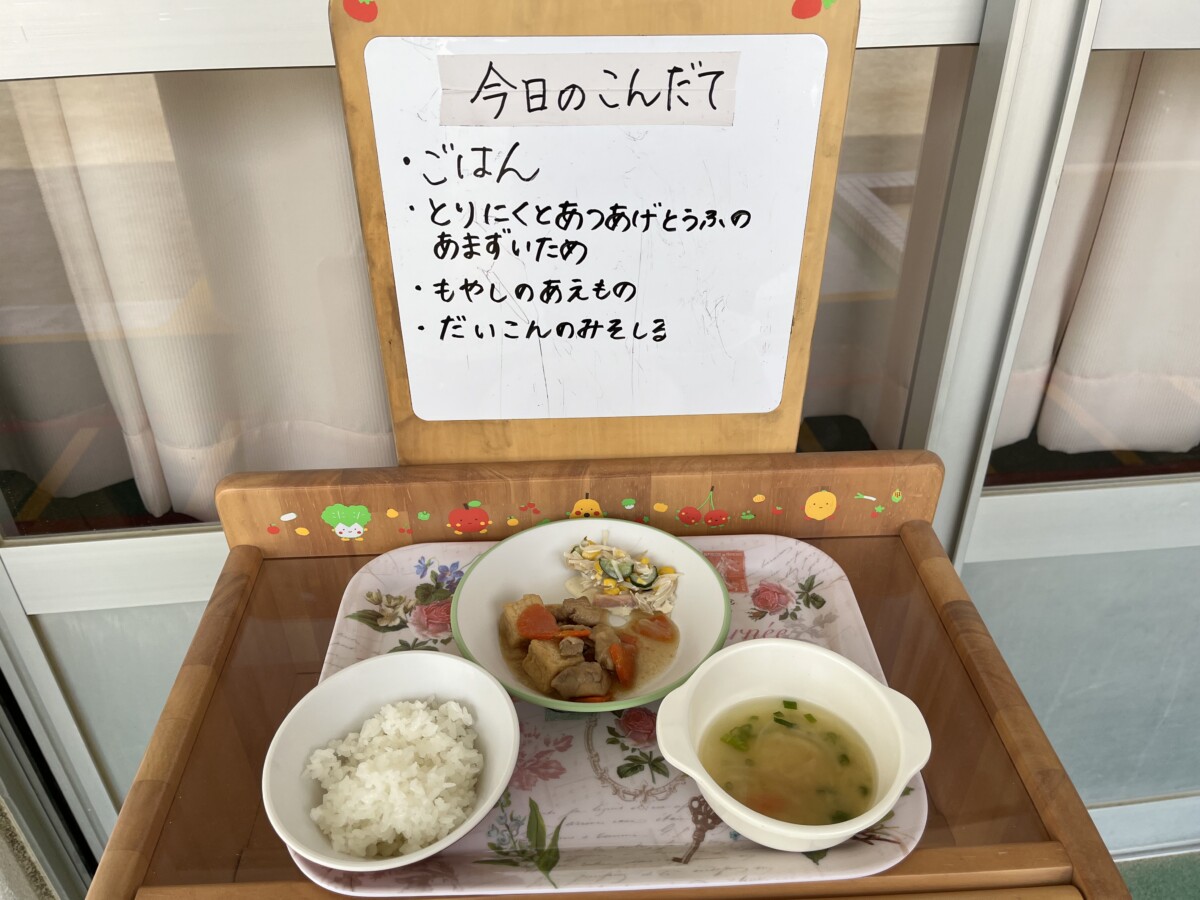 今日のこんだて
・ごはん
・とりにくとあつあげとうふの
あまずいため
・もやしのあえもの
・だいこんのみそしる